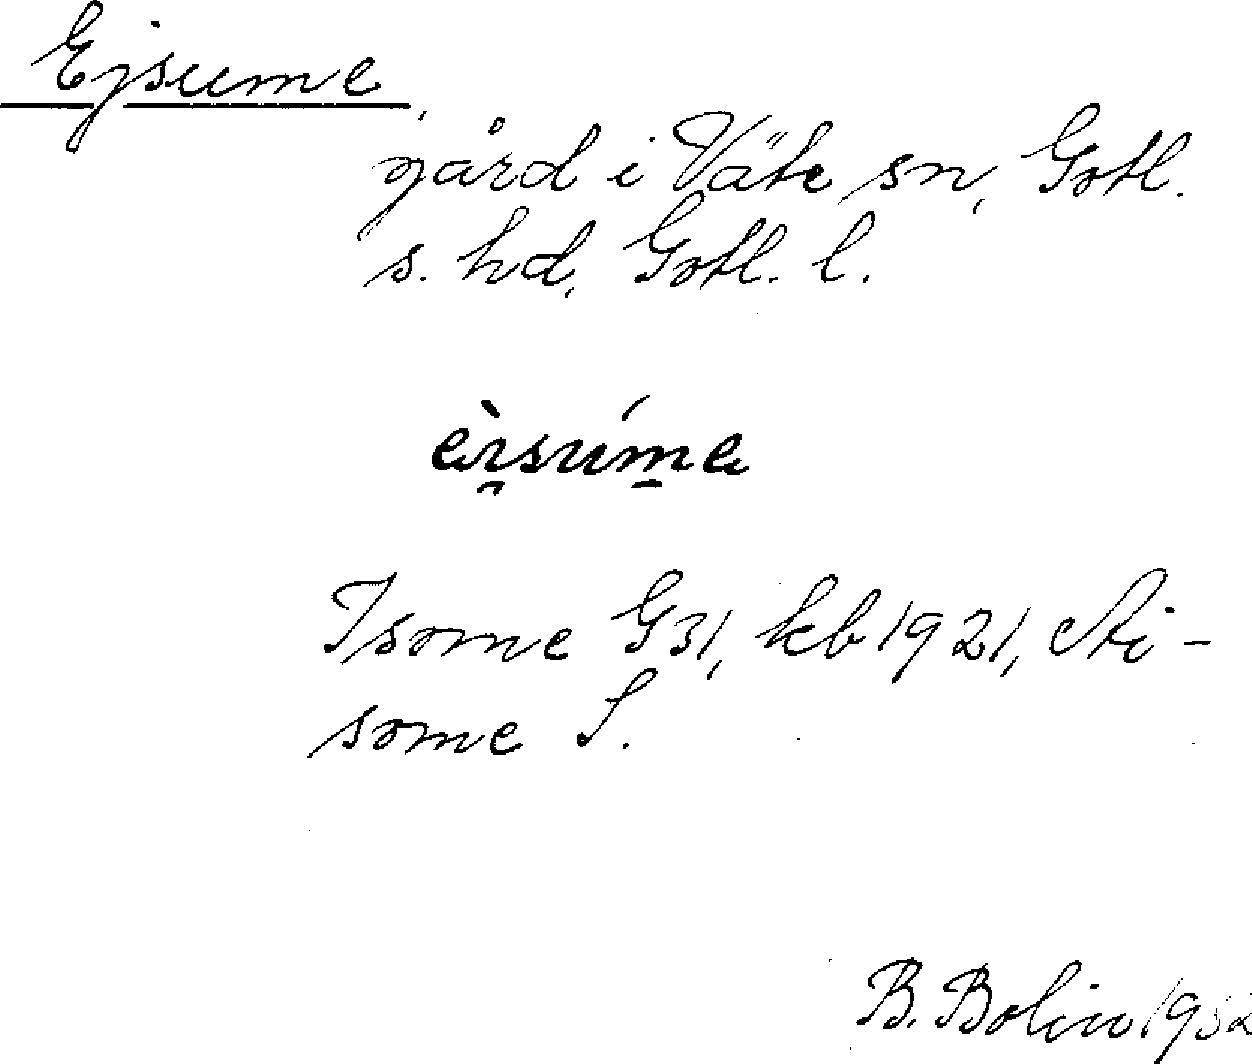 Ejsume,
gård i Väte sn, Gotl.
s. hd, Gotl. l.
Isome G31, kb 1921, Ai-
some S.
B. Bolin 1932